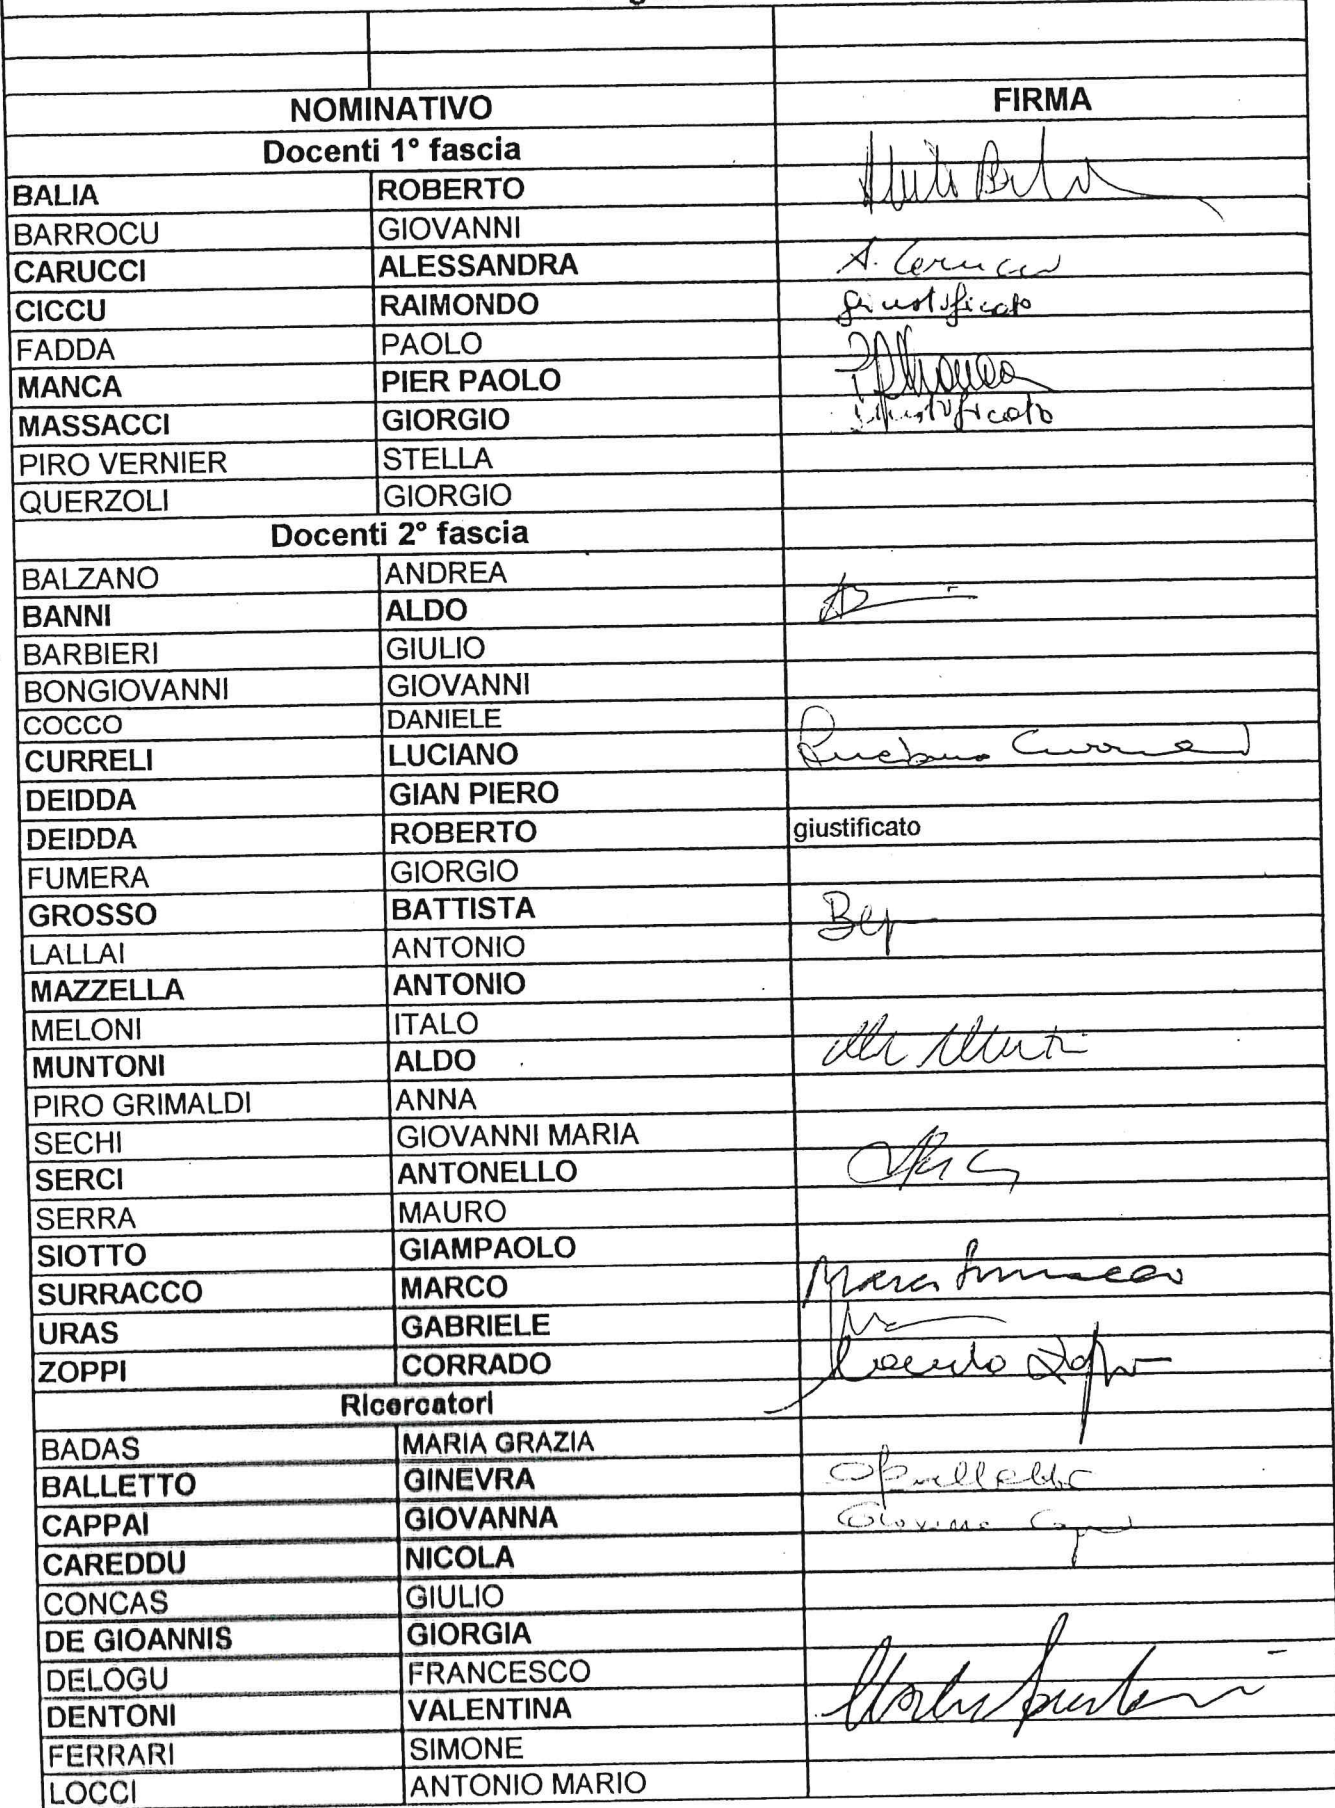 NOMINATIVO FIRMA
Docenti 1° fascia
BALIA ROBERTO
BARROCU GIOVANNI
CARUCCI ALESSANDRA A. Carucci
CICCU RAIMONDO giustificato
FADDA PAOLO
MANCA PIER PAOLO
MASSACCI GIORGIO giustificato
PIRO VERNIER STELLA
QUERZOLI GIORGIO
Docenti 2° fascia
BALZANO ANDREA
BANNI ALDO
BARBIERI GIULIO
BONGIOVANNI GIOVANNI
COCCO DANIELE
CURRELI LUCIANO Luciano Curreli
DEIDDA GIAN PIERO
DEIDDA ROBERTO giustificato
FUMERA GIORGIO
GROSSO BATTISTA
LALLAI ANTONIO
MAZZELLA ANTONIO
MELONI ITALO
MUNTONI ALDO
PIRO GRIMALDI ANNA
SECHI GIOVANNI MARIA
SERCI ANTONELLO
SERRA MAURO
SIOTTO GIAMPAOLO
SURRACCO MARCO Marco Surracco
URAS GABRIELE
ZOPPI CORRADO Corrado Zoppi
Ricercatori
BADAS MARIA GRAZIA
BALLETTO GINEVRA
CAPPAI GIOVANNA Giovanna Cappai
CAREDDU NICOLA
CONCAS GIULIO
DE GIOANNIS GIORGIA
DELOGU FRANCESCO
DENTONI VALENTINA
FERRARI SIMONE
LOCCI ANTONIO MARIO